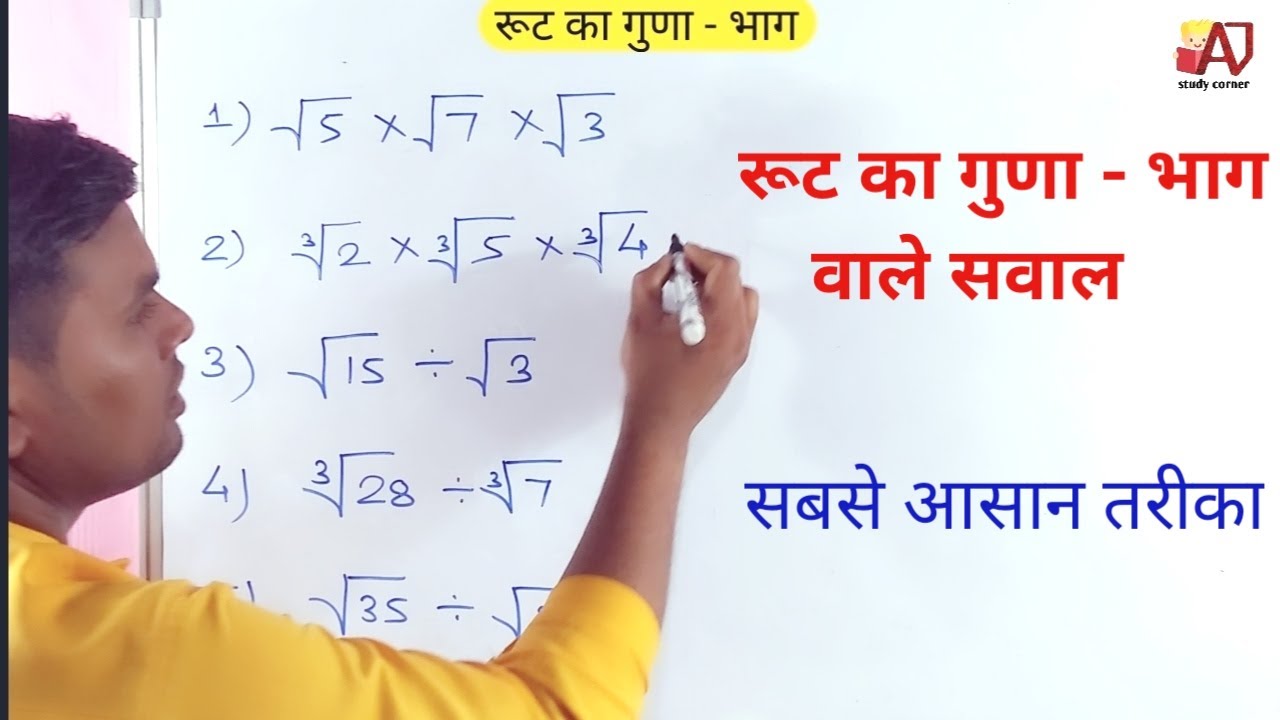 रूट का गुणा - भाग
AJ
study corner
1) √5 × √7 × √3
2) ∛2 × ∛5 × ∛4
3) √15 ÷ √3
4) ∛28 ÷ ∛7
√35 ÷
रूट का गुणा - भाग
वाले सवाल
सबसे आसान तरीका